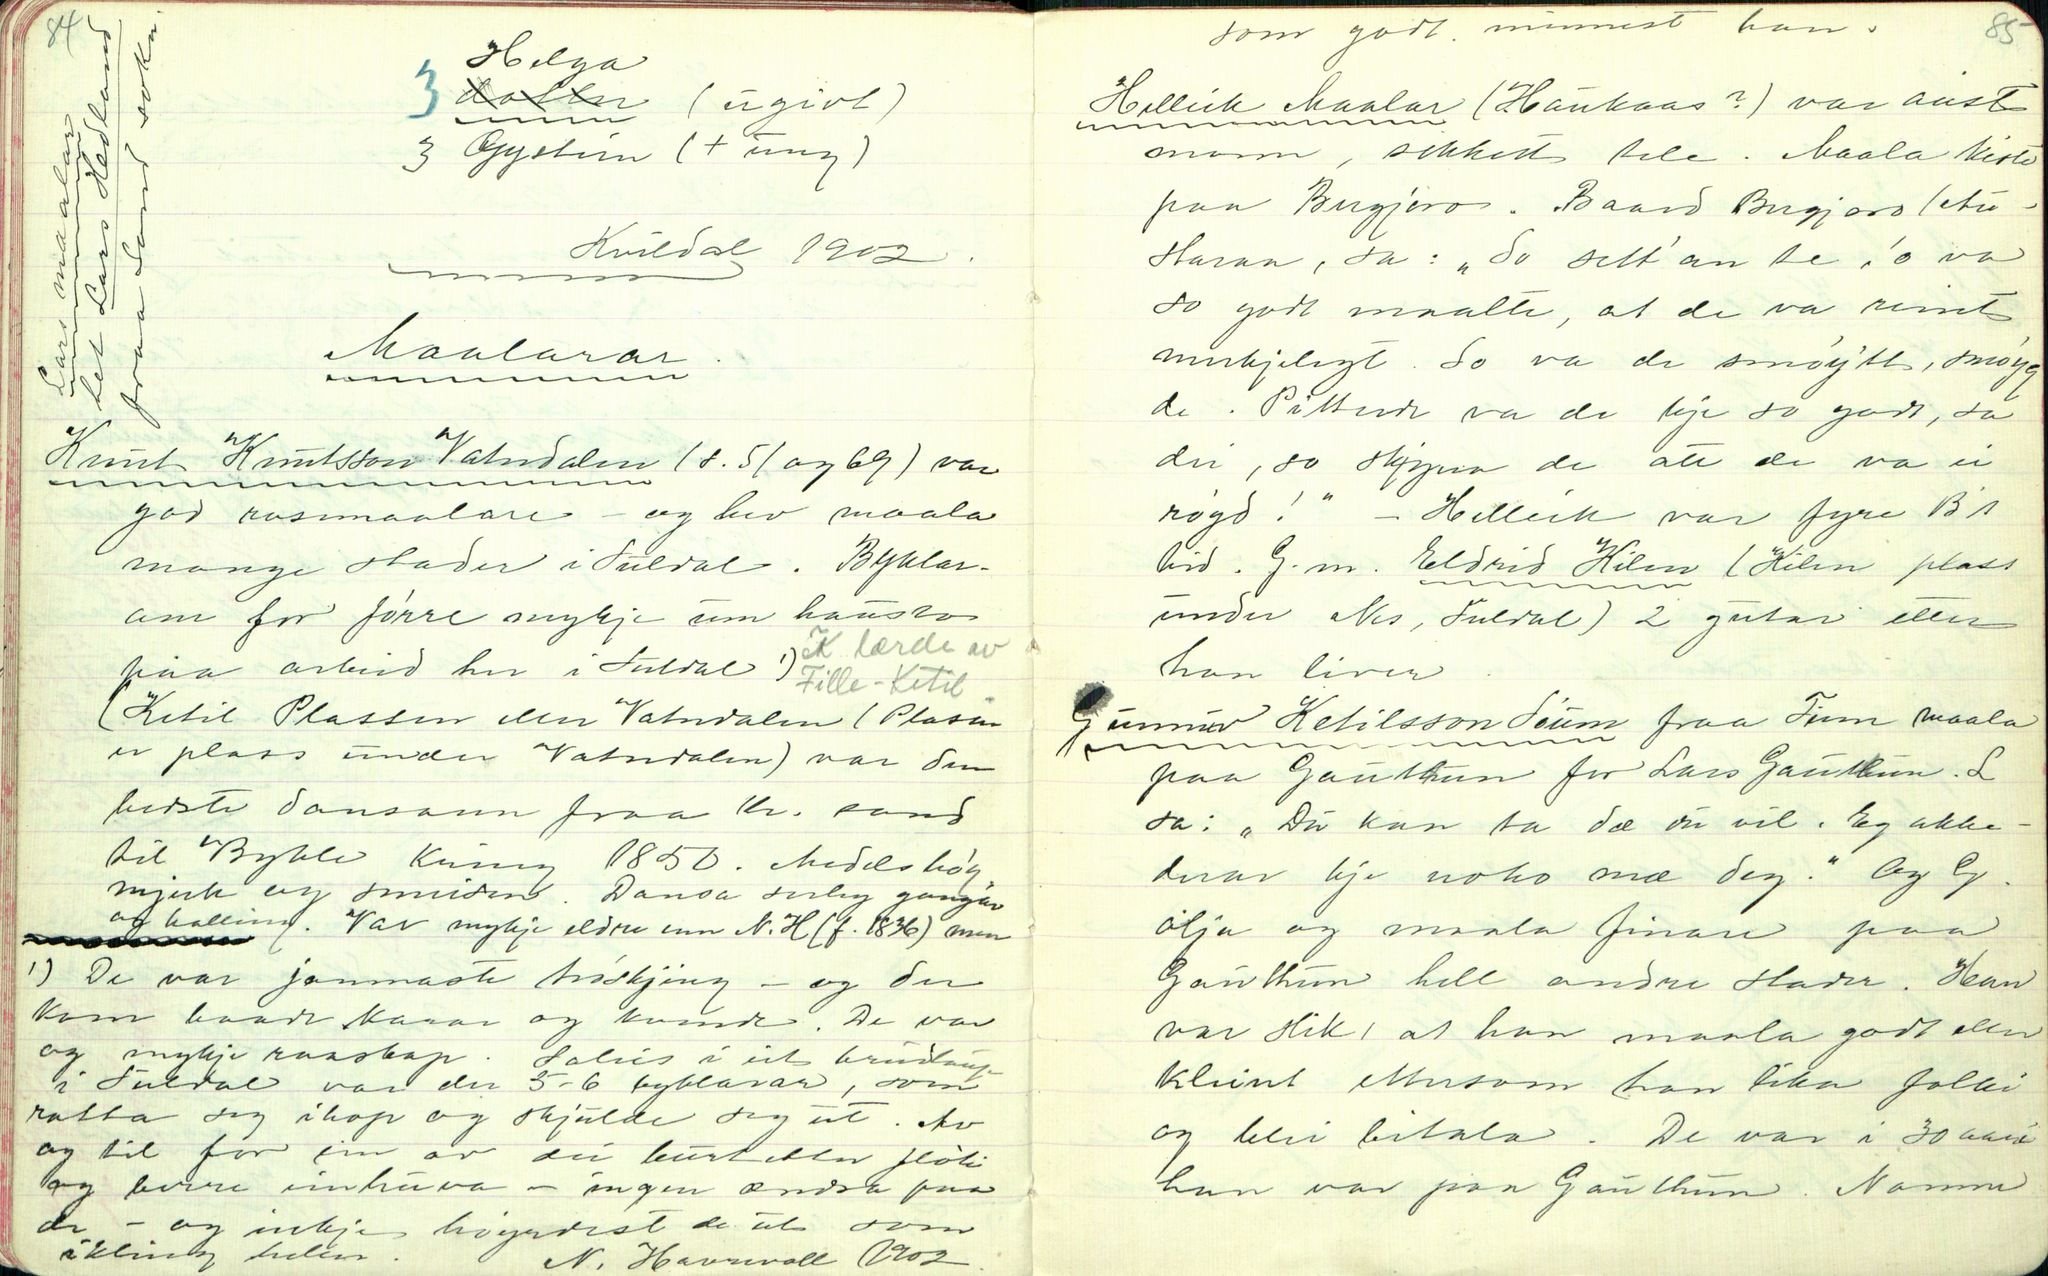 84
Lars maalar
het Lars Hedland
fraa Sand sokn
Helga
3 dotter (ugivt)
3 Øystein (+ ung)
Kvildal 1902.
Maalarar.
Knut Knutsson Vatndalen (s. 51 og 69) var
god rosemaalare - og hev maala
mange stader i Suldal. Byklar-
ane for fórre mykje um hausto
paa arbeid her i Suldal 1) K lærde av
Fille-Ketil.
(Ketil Plassen eller Vatndalen (Plassen
er plass under Vatndalen) var den
bedste dansaren fraa Kr. sand
til Bykle kring 1850. Medelshög
mjuk og smeiden. Dansa serleg gangar
og halling. Var mykje eldre enn N. H (f. 1836) men
1) De var jammaste tröskjing - og der
kom baade karar og kvende. De var
og mykje raaskap. Soleis i eit brudlaup
i Suldal var der 5-6 byklarar, som
rotta seg ihop og skjulde seg ut. Av
og til for ein av dei burt etter
og berre einhuva - ingen andra paa
de - og inkje högrdest de ut som
ikling helen. N. Havrevoll 1902.
85
som godt minnest han.
Helleik Maalar (Haukaas?) var aust
mann, sikkett tele. Maala kisto
paa Bergjoro. Baard Bergjoro (Au-
staraa, sa: „So sett'an te, 'o va
so godt maalte, at de va reint
merkjelegt. So va de smöytt, smöyg
de. Pitterde va de kje so godt, sa
dei, so skjyna de att de va ei
rögd!" - Helleik var fyre B's
tid. G. m. Eldrid Kilen (Kilen plass
under Nes, Suldal) 2 gutar etter
han liver.
Gunnuv Ketilsson Soum fraa Tum maala
paa Gautun for Lars Gautun. L
sa: „Du kan ta dæ du vil. Eg akke-
derar kje noko mæ deg." Og G.
olja og maala finare paa
Gautun hell andre stader. Han
var slik, at han maala godt eller
kleint ettersom han lika folki
og blei bitala. De var i 30 aari
han var paa Gautun. Namne